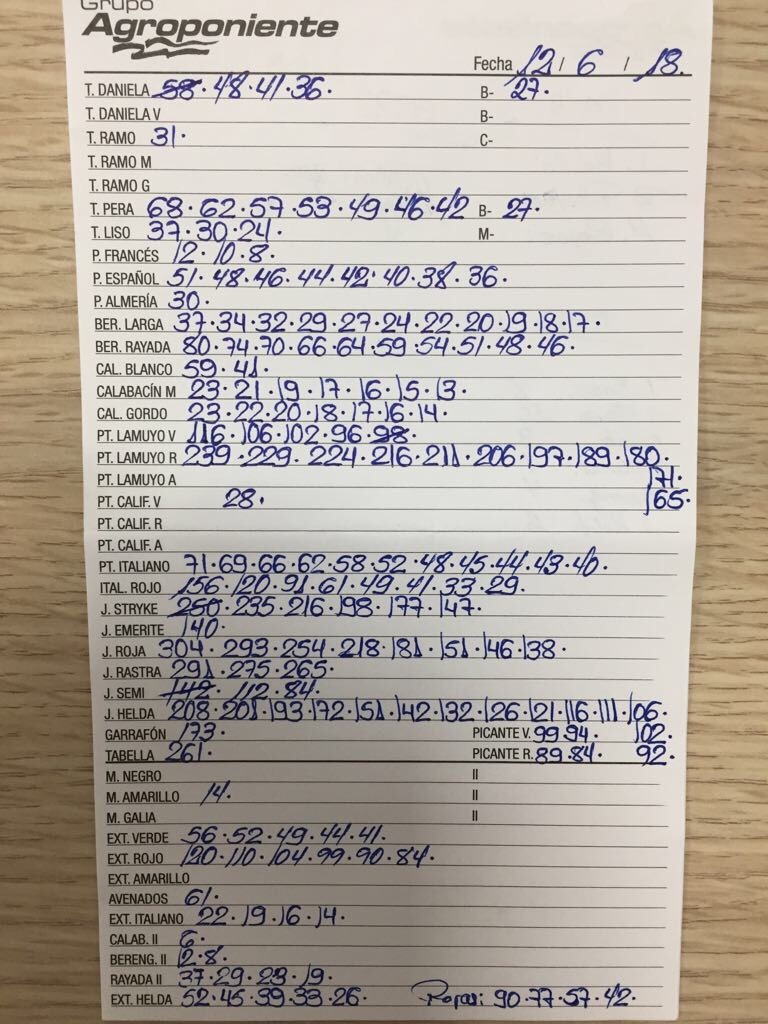 Grupo
Agroponiente
Fecha 12 / 6 / 18.
T. DANIELA 58. 48. 41. 36. B- 27.
T. DANIELA V B-
T. RAMO 31. C-
T. RAMO M
T. RAMO G
T. PERA 68. 62. 57. 53. 49. 46. 42 B- 27.
T. LISO 37. 30. 24. M-
P. FRANCÉS 12. 10. 8.
P. ESPAÑOL 51. 48. 46. 44. 42. 40. 38. 36.
P. ALMERÍA 30.
BER. LARGA 37. 34. 32. 29. 27. 24. 22. 20. 19. 18. 17.
BER. RAYADA 80. 74. 70. 66. 64. 59. 54. 51. 48. 46.
CAL. BLANCO 59. 41.
CALABACÍN M 23. 21. 19. 17. 16. 15. 13.
CAL. GORDO 23. 22. 20. 18. 17. 16. 14.
PT. LAMUYO V 116. 106. 102. 96. 98.
PT. LAMUYO R 239. 229. 224. 216. 211. 206. 197. 189. 180.
PT. LAMUYO A 171.
PT. CALIF. V 28. 165.
PT. CALIF. R
PT. CALIF. A
PT. ITALIANO 71. 69. 66. 62. 58. 52. 48. 45. 44. 43. 40.
ITAL. ROJO 156. 120. 91. 61. 49. 41. 33. 29.
J. STRYKE 250. 235. 216. 198. 177. 147.
J. EMERITE 140.
J. ROJA 304. 293. 254. 218. 181. 151. 146. 138.
J. RASTRA 291. 275. 265.
J. SEMI 142. 112. 84.
J. HELDA 208. 201. 193. 172. 151. 142. 132. 126. 121. 116. 111. 106.
GARRAFÓN 173. PICANTE V. 99. 94. 102.
TABELLA 261. PICANTE R. 89. 84. 92.
M. NEGRO II
M. AMARILLO 14. II
M. GALIA II
EXT. VERDE 56. 52. 49. 44. 41.
EXT. ROJO 120. 110. 104. 99. 90. 84.
EXT. AMARILLO
AVENADOS 61.
EXT. ITALIANO 22. 19. 16. 14.
CALAB. II 6.
BERENG. II 12. 8.
RAYADA II 37. 29. 23. 19.
EXT. HELDA 52. 45. 39. 33. 26. 90. 77. 57. 42.